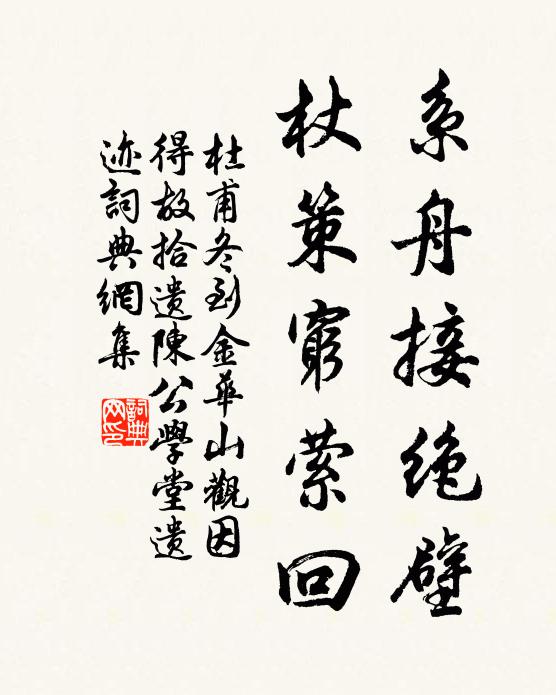 系舟接绝壁
杖策窮萦回
杜甫冬到金華山觀因
得故拾遺陳公學堂遺
迹詞典網集
詞典
网印